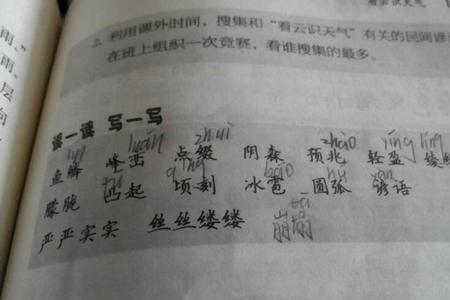 看云识天气
雨、”
雨、
层
向
2. 利用课外时间，搜集和“看云识天气”有关的民间谚
在班上组织一次竞赛，看谁搜集的最多。
读一读 写一写
lín luán zhuì zhào yíng líng
鱼鳞 峰峦 点缀 阴森 预兆 轻盈 绫
tū qǐng báo hú yàn
朦胧 凸起 顷刻 冰雹 圆弧 谚语
tā
严严实实 丝丝缕缕 崩塌